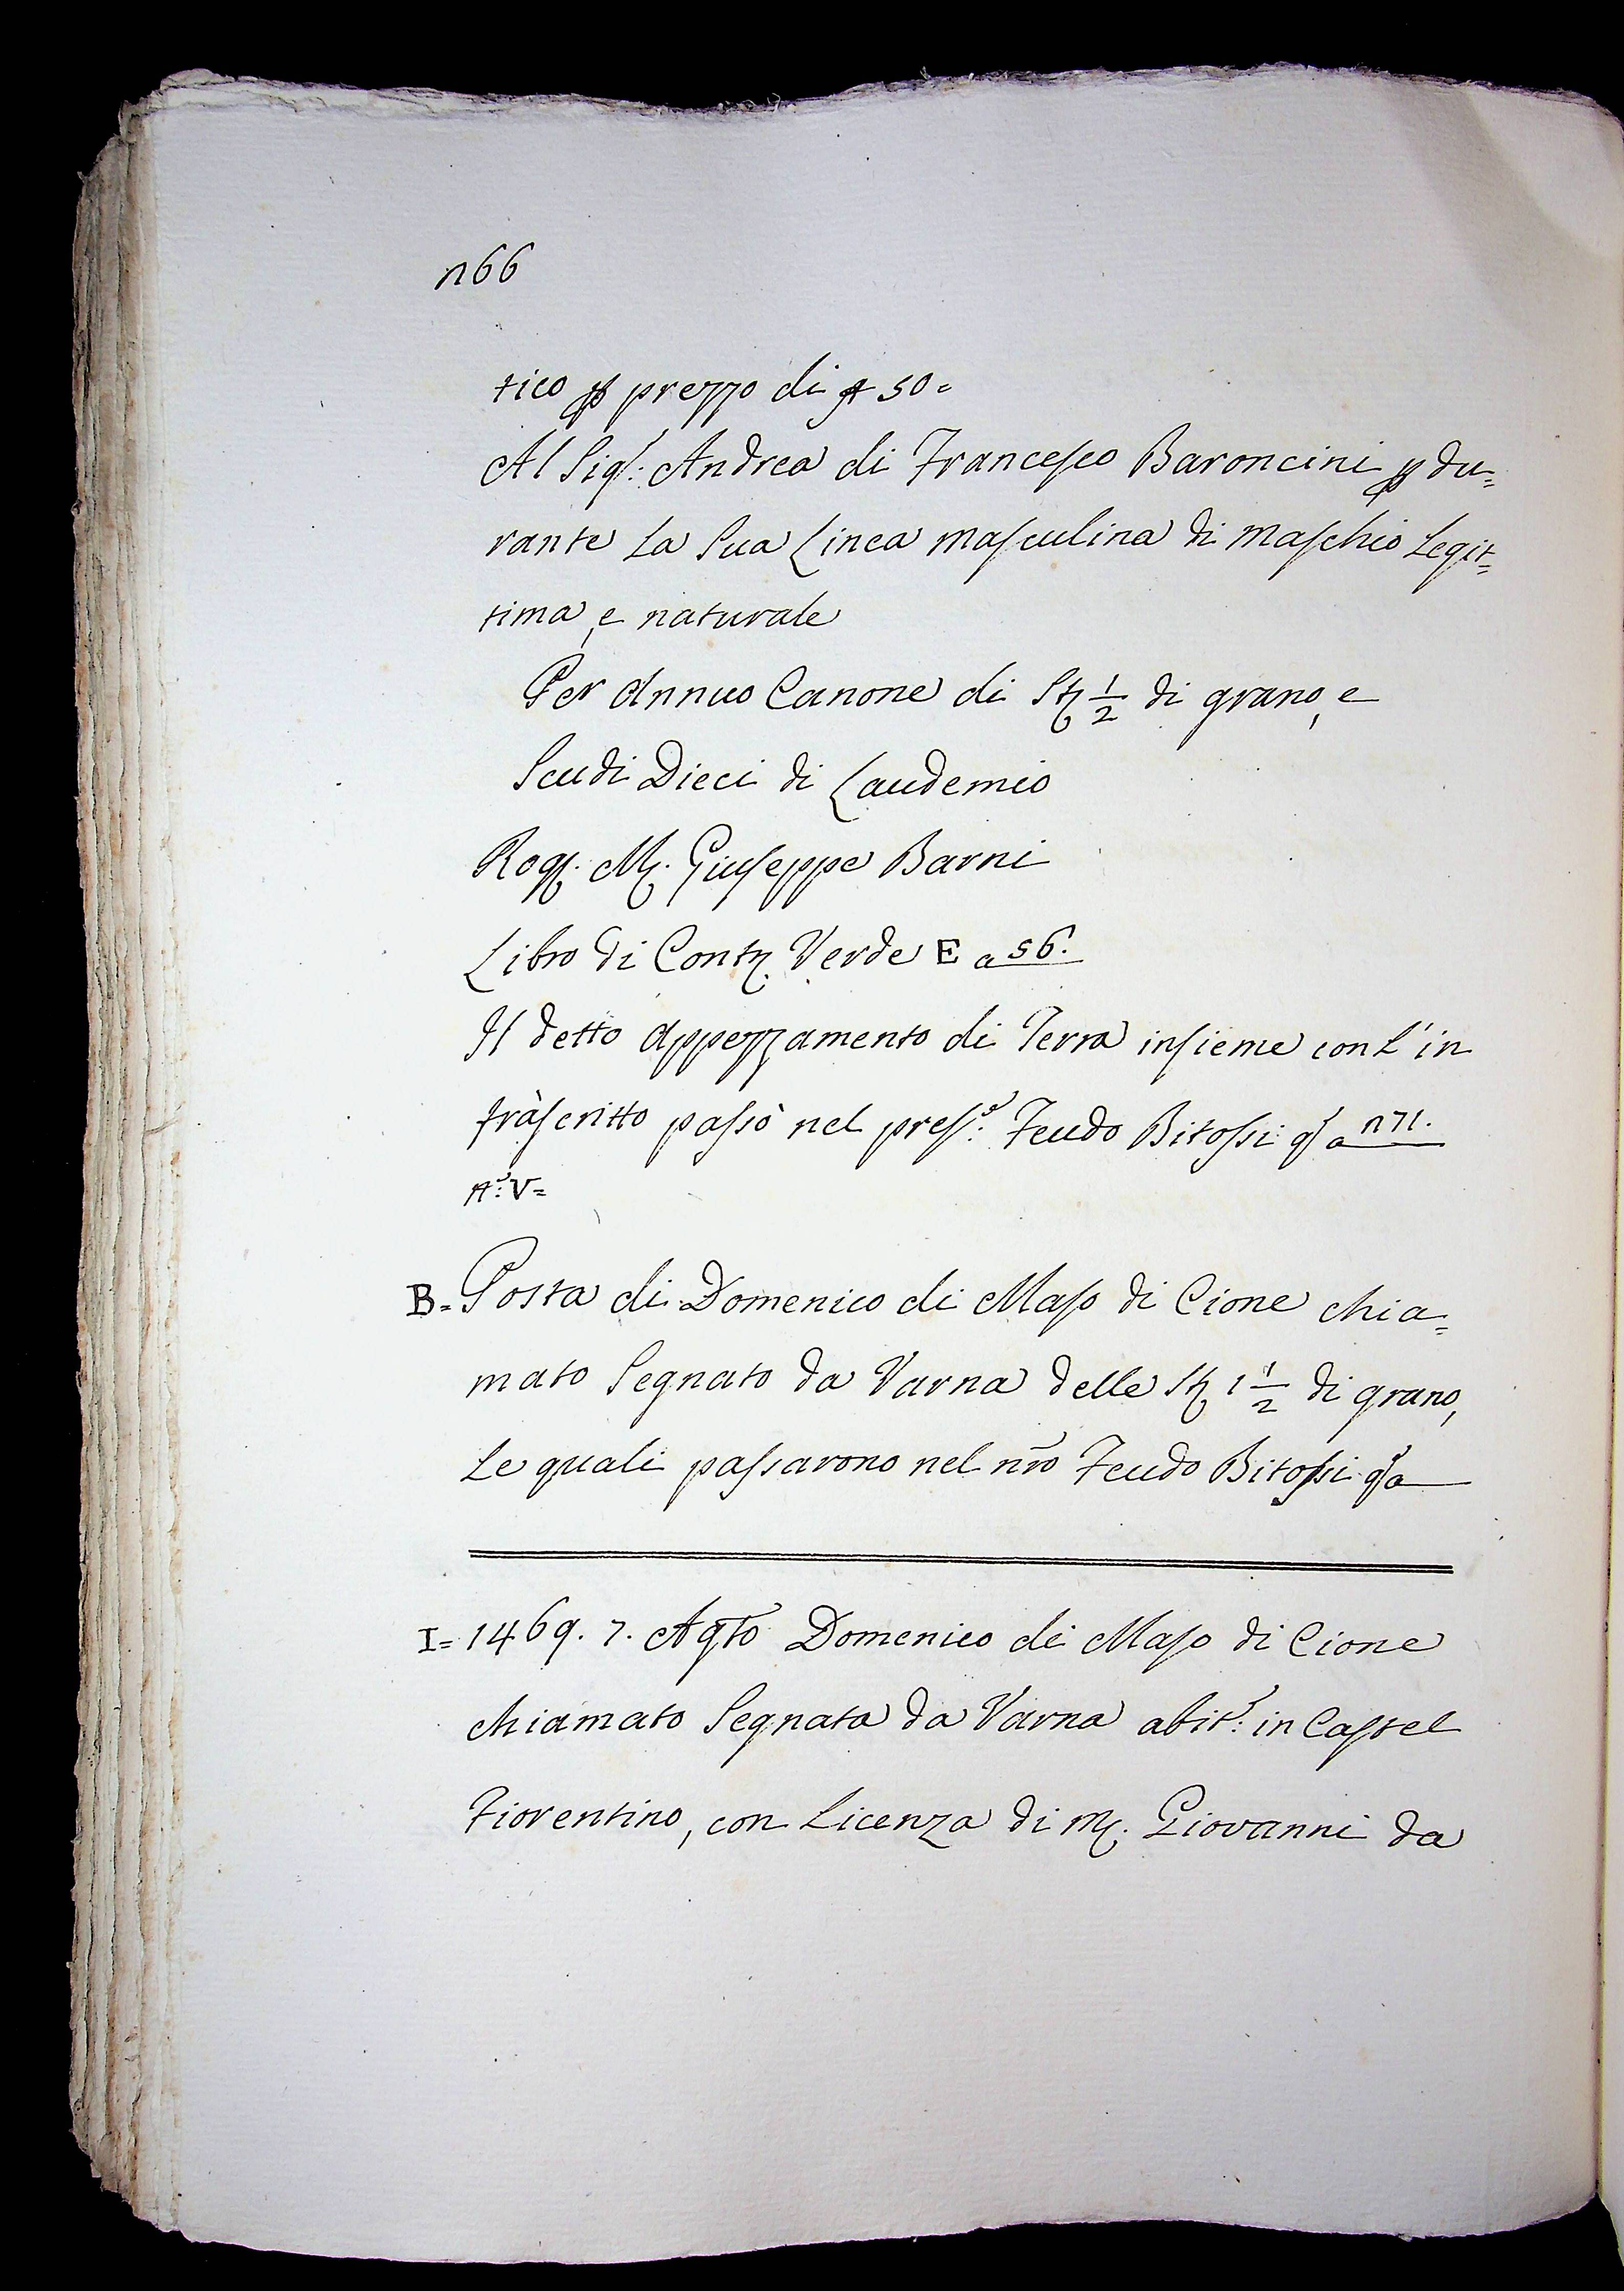 n66
tico p prezzo di 50=
Al Sig.r Andrea di Francesco Baroncini p du=
rante La Sua Linea Masculina di Maschio Legit=
tima, e naturale
Per Annuo Canone di St 1/2 di grano, e
Scudi Dieci di Laudemio
Rog. M. Giuseppe Barni
Libro di Contr. Verde E a 56.
Il detto Appezzamento di Terra insieme con L'in
fràscritto passò nel pres.e Feudo Bitossi q a n71.
N.o V=
B= Posta di Domenico di Maso di Cione chia=
mato Segnato da Varna delle St 1 1/2 di grano,
Le quali passarono nel nr̃o Feudo Bitossi q a
I= 1469. 7. Agto Domenico di Maso di Cione
chiamato Segnata da Varna abit.r in Castel
Fiorentino, con Licenza di M. Giovanni da